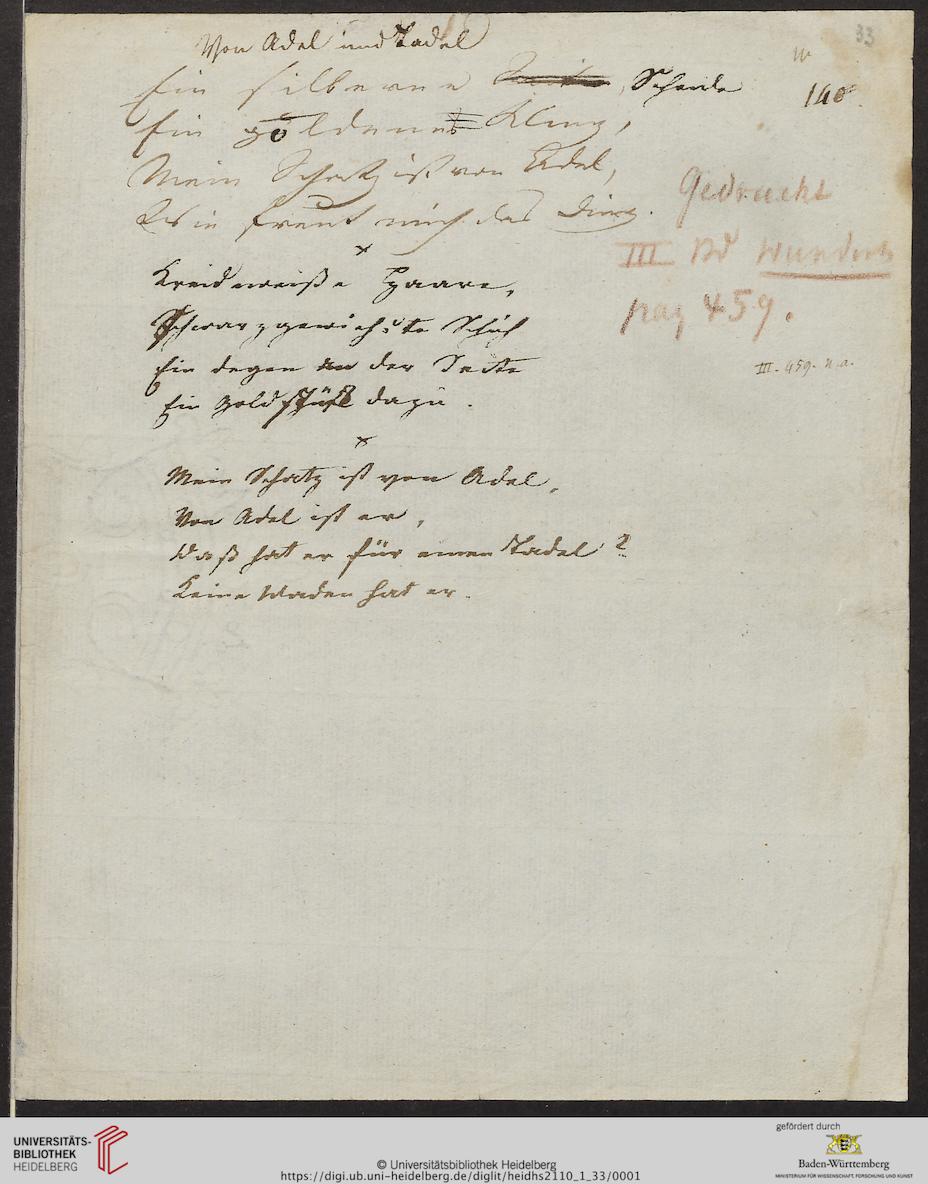 33
Von Adel und Tadel
w
140.
Ein silberne Scheide
Ein goldene Kling,
Mein Schatz ist von Adel,
Wie freut mich das Ding.
Gedruckt
III Bd Wunderh
pag 459.
x
Kreidenweiße Haare,
Schwarz gewichste Schüh
Ein Degen an der Seite
Ein Goldstück dazu.
III. 459. n.a.
x
Mein Schatz ist von Adel,
Von Adel ist er,
Waß hat er für einen Tadel?
Keine Waden hat er.
UNIVERSITÄTS-
BIBLIOTHEK
HEIDELBERG
© Universitätsbibliothek Heidelberg
https://digi.ub.uni-heidelberg.de/diglit/heidhs2110_1_33/0001
gefördert durch
Baden-Württemberg
MINISTERIUM FÜR WISSENSCHAFT, FORSCHUNG UND KUNST